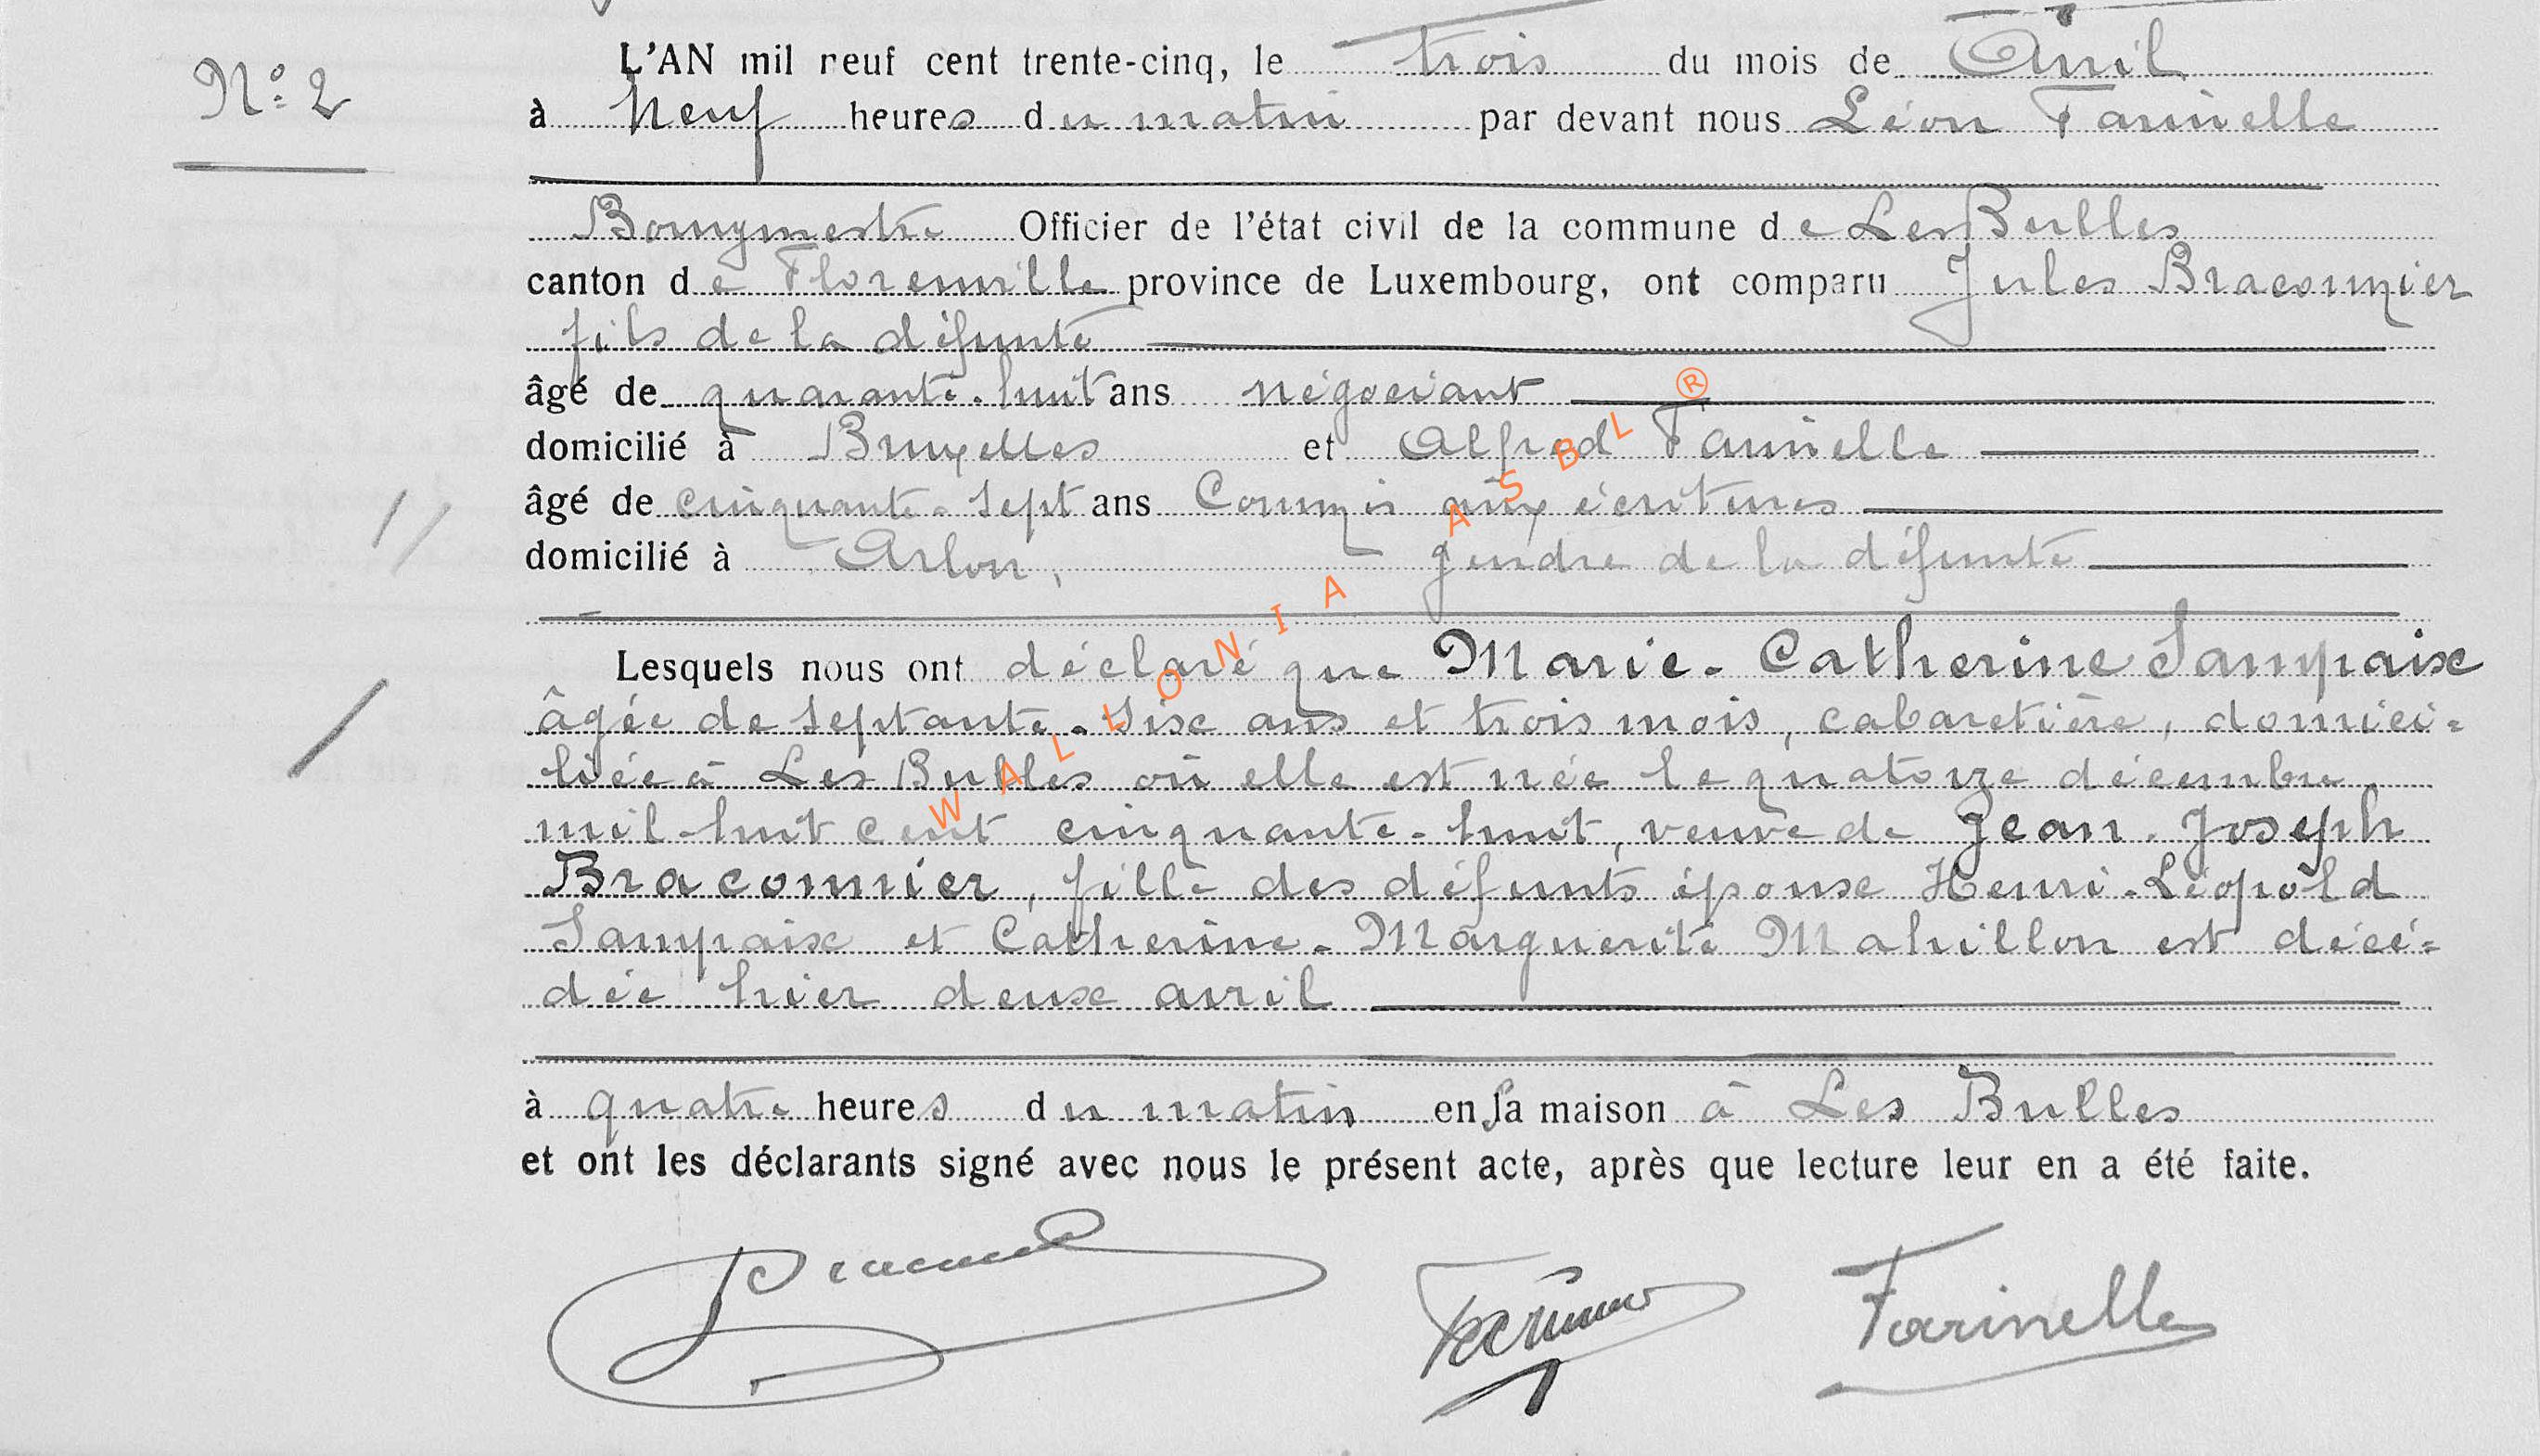 N° 2
L'AN mil neuf cent trente-cinq, le trois du mois de Avril
à Neuf heures du matin par devant nous Léon Farinelle
Bourgmestre Officier de l'état civil de la commune de Les Bulles
canton de Florenville province de Luxembourg, ont comparu Jules Braconnier
fils de la défunte
âgé de quarante-huit ans négociant
domicilié à Bruxelles et Alfred Farinelle
âgé de cinquante-sept ans Commis aux écritures
domicilié à Arlon, gendre de la défunte
Lesquels nous ont déclaré que Marie-Catherine Sampaix
âgée de septante-six ans et trois mois, cabaretière, domici=
liée à Les Bulles où elle est née le quatorze décembre
mil-huit cent cinquante-huit, veuve de Jean-Joseph
Braconnier, fille des défunts époux Henri-Léopold
Sampaix et Catherine-Marguerite Mahillon est décé=
dée hier deux avril
à quatre heures du matin en sa maison à Les Bulles
et ont les déclarants signé avec nous le présent acte, après que lecture leur en a été faite.
Farinelle
WALLONIA ASBL ®